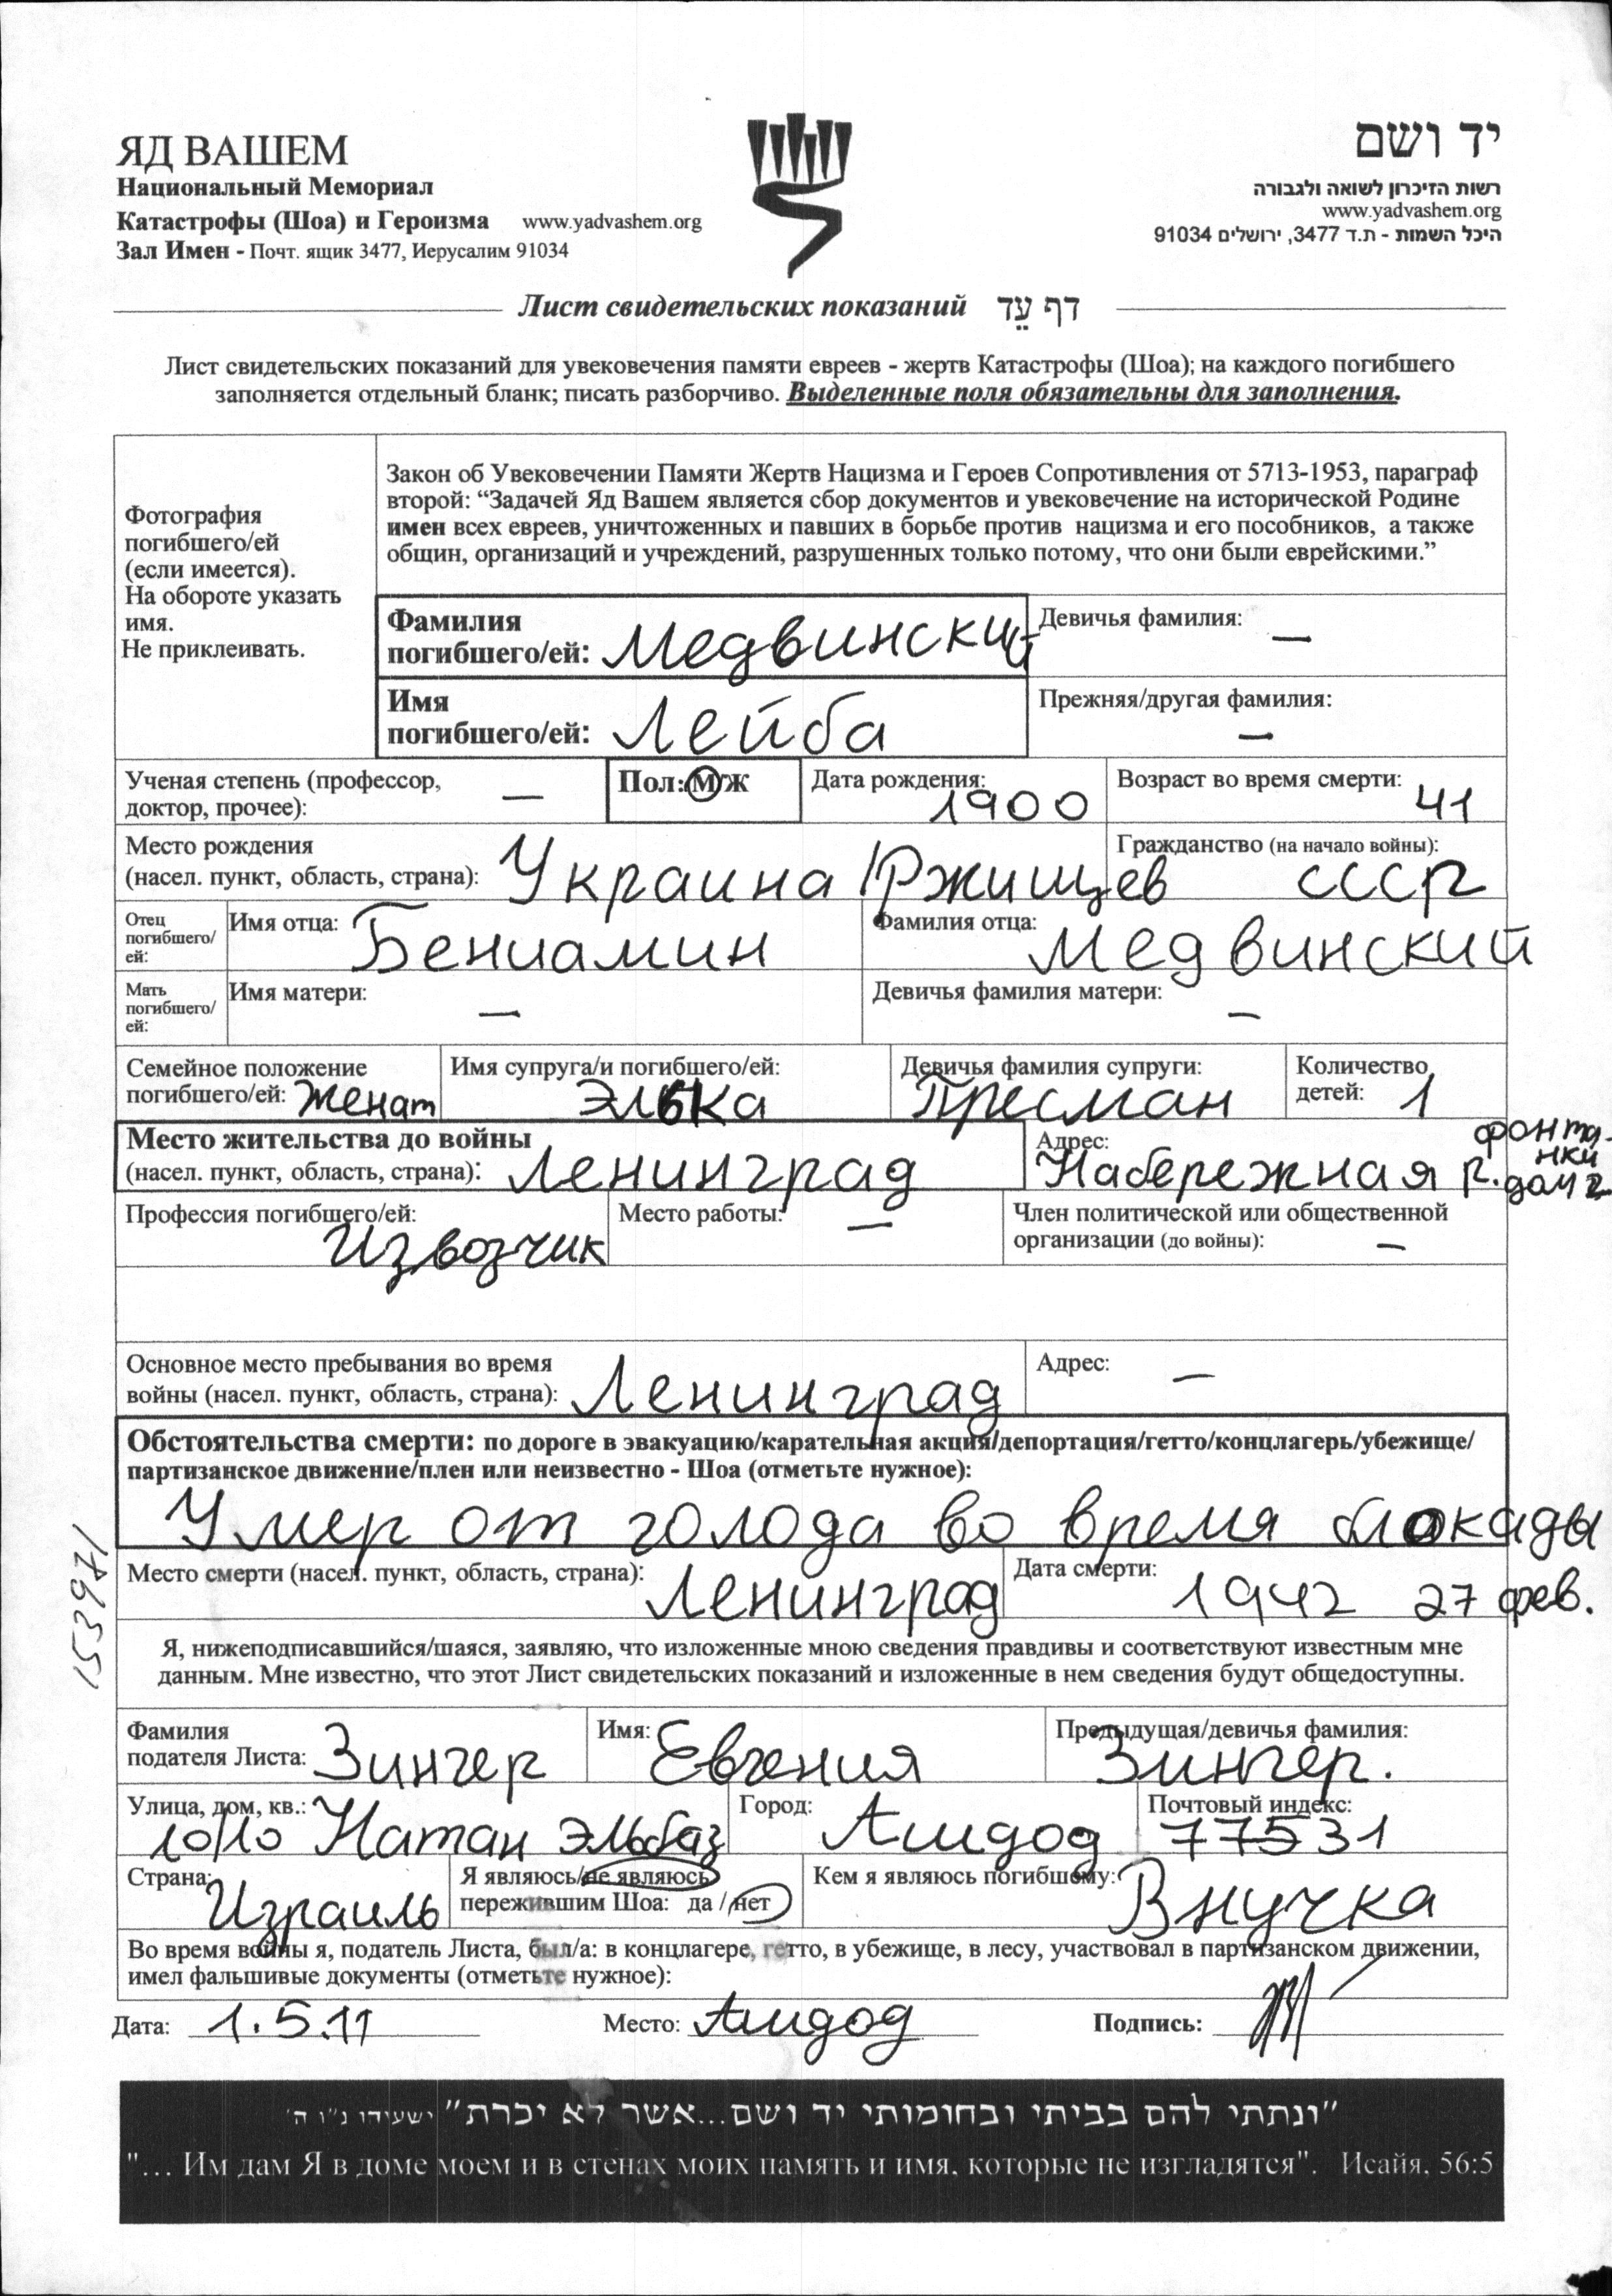 ЯД ВАШЕМ
Национальный Мемориал
Катастрофы (Шоа) и Героизма www.yadvashem.org
Зал Имен - Почт. ящик 3477, Иерусалим 91034
יד ושם
רשות הזיכרון לשואה ולגבורה
www.yadvashem.org
היכל השמות - ת.ד 3477, ירושלים 91034
Лист свидетельских показаний דף עֵד
Лист свидетельских показаний для увековечения памяти евреев - жертв Катастрофы (Шоа); на каждого погибшего
заполняется отдельный бланк; писать разборчиво. Выделенные поля обязательны для заполнения.
Фотография
погибшего/ей
(если имеется).
На обороте указать
имя.
Не приклеивать.
Закон об Увековечении Памяти Жертв Нацизма и Героев Сопротивления от 5713-1953, параграф
второй: “Задачей Яд Вашем является сбор документов и увековечение на исторической Родине
имен всех евреев, уничтоженных и павших в борьбе против нацизма и его пособников, а также
общин, организаций и учреждений, разрушенных только потому, что они были еврейскими.”
Фамилия
погибшего/ей: Медвинский
Девичья фамилия: —
Имя
погибшего/ей: Лейба
Прежняя/другая фамилия:
—
Ученая степень (профессор,
доктор, прочее): —
Пол: М/Ж
Дата рождения:
1900
Возраст во время смерти:
41
Место рождения
(насел. пункт, область, страна): Украина / Ржищев
Гражданство (на начало войны):
СССР
Отец
погибшего/
ей:
Имя отца: Бениамин
Фамилия отца:
Медвинский
Мать
погибшего/
ей:
Имя матери:
—
Девичья фамилия матери:
—
Семейное положение
погибшего/ей: Женат
Имя супруга/и погибшего/ей:
Элька
Девичья фамилия супруги:
Пресман
Количество
детей: 1
Место жительства до войны
(насел. пункт, область, страна): Ленинград
Адрес:
Набережная р. фонта-
нки
дом 2
Профессия погибшего/ей:
Извозчик
Место работы: —
Член политической или общественной
организации (до войны): —
Основное место пребывания во время
войны (насел. пункт, область, страна): Ленинград
Адрес: —
Обстоятельства смерти: по дороге в эвакуацию/карательная акция/депортация/гетто/концлагерь/убежище/
партизанское движение/плен или неизвестно - Шоа (отметьте нужное):
Умер от голода во время блокады
Место смерти (насел. пункт, область, страна): Ленинград
Дата смерти:
1942 27 фев.
153971
Я, нижеподписавшийся/шаяся, заявляю, что изложенные мною сведения правдивы и соответствуют известным мне
данным. Мне известно, что этот Лист свидетельских показаний и изложенные в нем сведения будут общедоступны.
Фамилия
подателя Листа: Зингер
Имя: Евгения
Предыдущая/девичья фамилия:
Зингер.
Улица, дом, кв.:
10/10 Натан Эльбаз
Город: Ашдод
Почтовый индекс:
77531
Страна:
Израиль
Я являюсь/не являюсь
пережившим Шоа: да / нет
Кем я являюсь погибшому:
Внучка
Во время войны я, податель Листа, был/а: в концлагере, гетто, в убежище, в лесу, участвовал в партизанском движении,
имел фальшивые документы (отметьте нужное):
Дата: 1.5.11
Место: Ашдод
Подпись:
"ונתתי להם בביתי ובחומותי יד ושם...אשר לא יכרת" ישעיהו נ"ו ה'
"... Им дам Я в доме моем и в стенах моих память и имя, которые не изгладятся". Исайя, 56:5